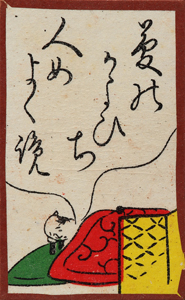 夢の
かよひ
ち
人め
よく覧